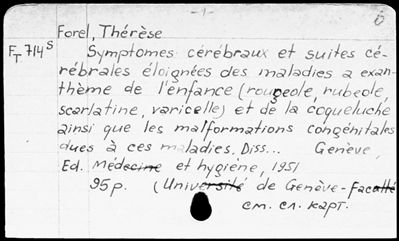 -1-
Forel, Thérèse
F_T 714^S
Symptomes cérébraux et suites cé-
rébrales éloignées des maladies a exan-
thème de l'enfance (rougeole, rubeole,
scarlatine, varicelle) et de la coqueluche
ainsi que les malformations congénitales
dues à ces maladies. Diss... Genève,
Ed. Médecine et hygiène, 1951
95 p. (Université de Genève-Faculté
см. сл. карт.